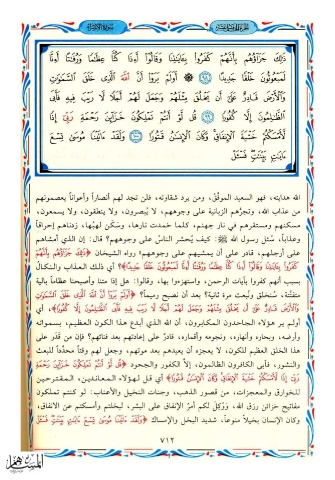 سورة الإسراء
ذَلِكَ جَزَآؤُهُم بِأَنَّهُمْ كَفَرُوا۟ بِـَٔايَـٰتِنَا وَقَالُوٓا۟ أَءِذَا كُنَّا عِظَـٰمًا وَرُفَـٰتًا أَءِنَّا
لَمَبْعُوثُونَ خَلْقًا جَدِيدًا ۞ أَوَلَمْ يَرَوْا۟ أَنَّ ٱللَّهَ ٱلَّذِى خَلَقَ ٱلسَّمَـٰوَٰتِ
وَٱلْأَرْضَ قَادِرٌ عَلَىٰٓ أَن يَخْلُقَ مِثْلَهُمْ وَجَعَلَ لَهُمْ أَجَلًا لَّا رَيْبَ فِيهِ فَأَبَى
ٱلظَّـٰلِمُونَ إِلَّا كُفُورًا قُل لَّوْ أَنتُمْ تَمْلِكُونَ خَزَآئِنَ رَحْمَةِ رَبِّىٓ إِذًا
لَّأَمْسَكْتُمْ خَشْيَةَ ٱلْإِنفَاقِ وَكَانَ ٱلْإِنسَـٰنُ قَتُورًا وَلَقَدْ ءَاتَيْنَا مُوسَىٰ تِسْعَ
ءَايَـٰتٍۭ بَيِّنَـٰتٍ فَسْـَٔلْ
الله هدايته، فهو السعيد الموفَّق، ومن يرد شقاوته، فلن تجد لهم أنصاراً وأعواناً يعصمونهم
من عذاب الله، ونجرُّهم الزبانية على وجوههم، لا يُبصرون، ولا ينطقون، ولا يسمعون،
مسكنهم ومستقرهم في نار جهنم، كلما خمدت نارها، وسكَن لهبُها، زدناهم إحراقاً
وعذاباً، سُئل رسول الله ﷺ: كيف يُحشر الناسُ على وجوههم؟ قال: إن الذي أمشاهم
على أرجلهم، قادر على أن يمشيهم على وجوههم؛ رواه الشيخان ﴿ذَلِكَ جَزَآؤُهُم بِأَنَّهُمْ
كَفَرُوا بِـَٔايَـٰتِنَا وَقَالُوٓا أَءِذَا كُنَّا عِظَـٰمًا وَرُفَـٰتًا أَءِنَّا لَمَبْعُوثُونَ خَلْقًا جَدِيدًا﴾؟ أي ذلك العذاب والنكالُ
بسبب أنهم كفروا بآيات الرحمن، واستهزءوا بها، وقالوا: هل إذا متنا وأصبحنا عظاماً بالية
متفتِّتة، سنُخلق ونُبعث مرة ثانية؟ بعد أن نصبح رميماً؟ ﴿أَوَلَمْ يَرَوْا أَنَّ ٱللَّهَ ٱلَّذِى خَلَقَ ٱلسَّمَـٰوَٰتِ
وَٱلْأَرْضَ قَادِرٌ عَلَىٰٓ أَن يَخْلُقَ مِثْلَهُمْ وَجَعَلَ لَهُمْ أَجَلًا لَّا رَيْبَ فِيهِ فَأَبَى ٱلظَّـٰلِمُونَ إِلَّا كُفُورًا﴾، أي
أولم ير هؤلاء الجاحدون المكابرون، أن الله الذي أبدع هذا الكون العظيم، بسمواته
وأرضه، وبحاره وأنهاره، ونجومه وأقماره، قادرٌ على إعادتهم بعد فنائهم؟ فإن من قدَر على
هذا الخلق العظيم للكون، لا يعجزه أن يعيدهم بعد موتهم، وجعل لهم وقتاً محدَّداً للبعث
والنشور، فأبى الكافرون الظالمون، إلاَّ الكفور والجحود ﴿قُل لَّوْ أَنتُمْ تَمْلِكُونَ خَزَآئِنَ رَحْمَةِ
رَبِّىٓ إِذًا لَّأَمْسَكْتُمْ خَشْيَةَ ٱلْإِنفَاقِ وَكَانَ ٱلْإِنسَـٰنُ قَتُورًا﴾ أي قل لهؤلاء المعاندين، المقترحين
للخوارق والمعجزات، من قصور الذهب، وجنات النخيل والأعناب: لو كنتم تملكون
مفاتيح خزائن رزق الله، ووُكِلَ لكم أمرُ الإنفاق على البشر، لبخلتم وأمسكتم عن الانفاق،
وكان الإنسان بخيلاً منوعاً، شديد البخل والإمساك ﴿وَلَقَدْ ءَاتَيْنَا مُوسَىٰ تِسْعَ ءَايَـٰتٍۭ بَيِّنَـٰتٍ فَسْـَٔلْ
٧١٢